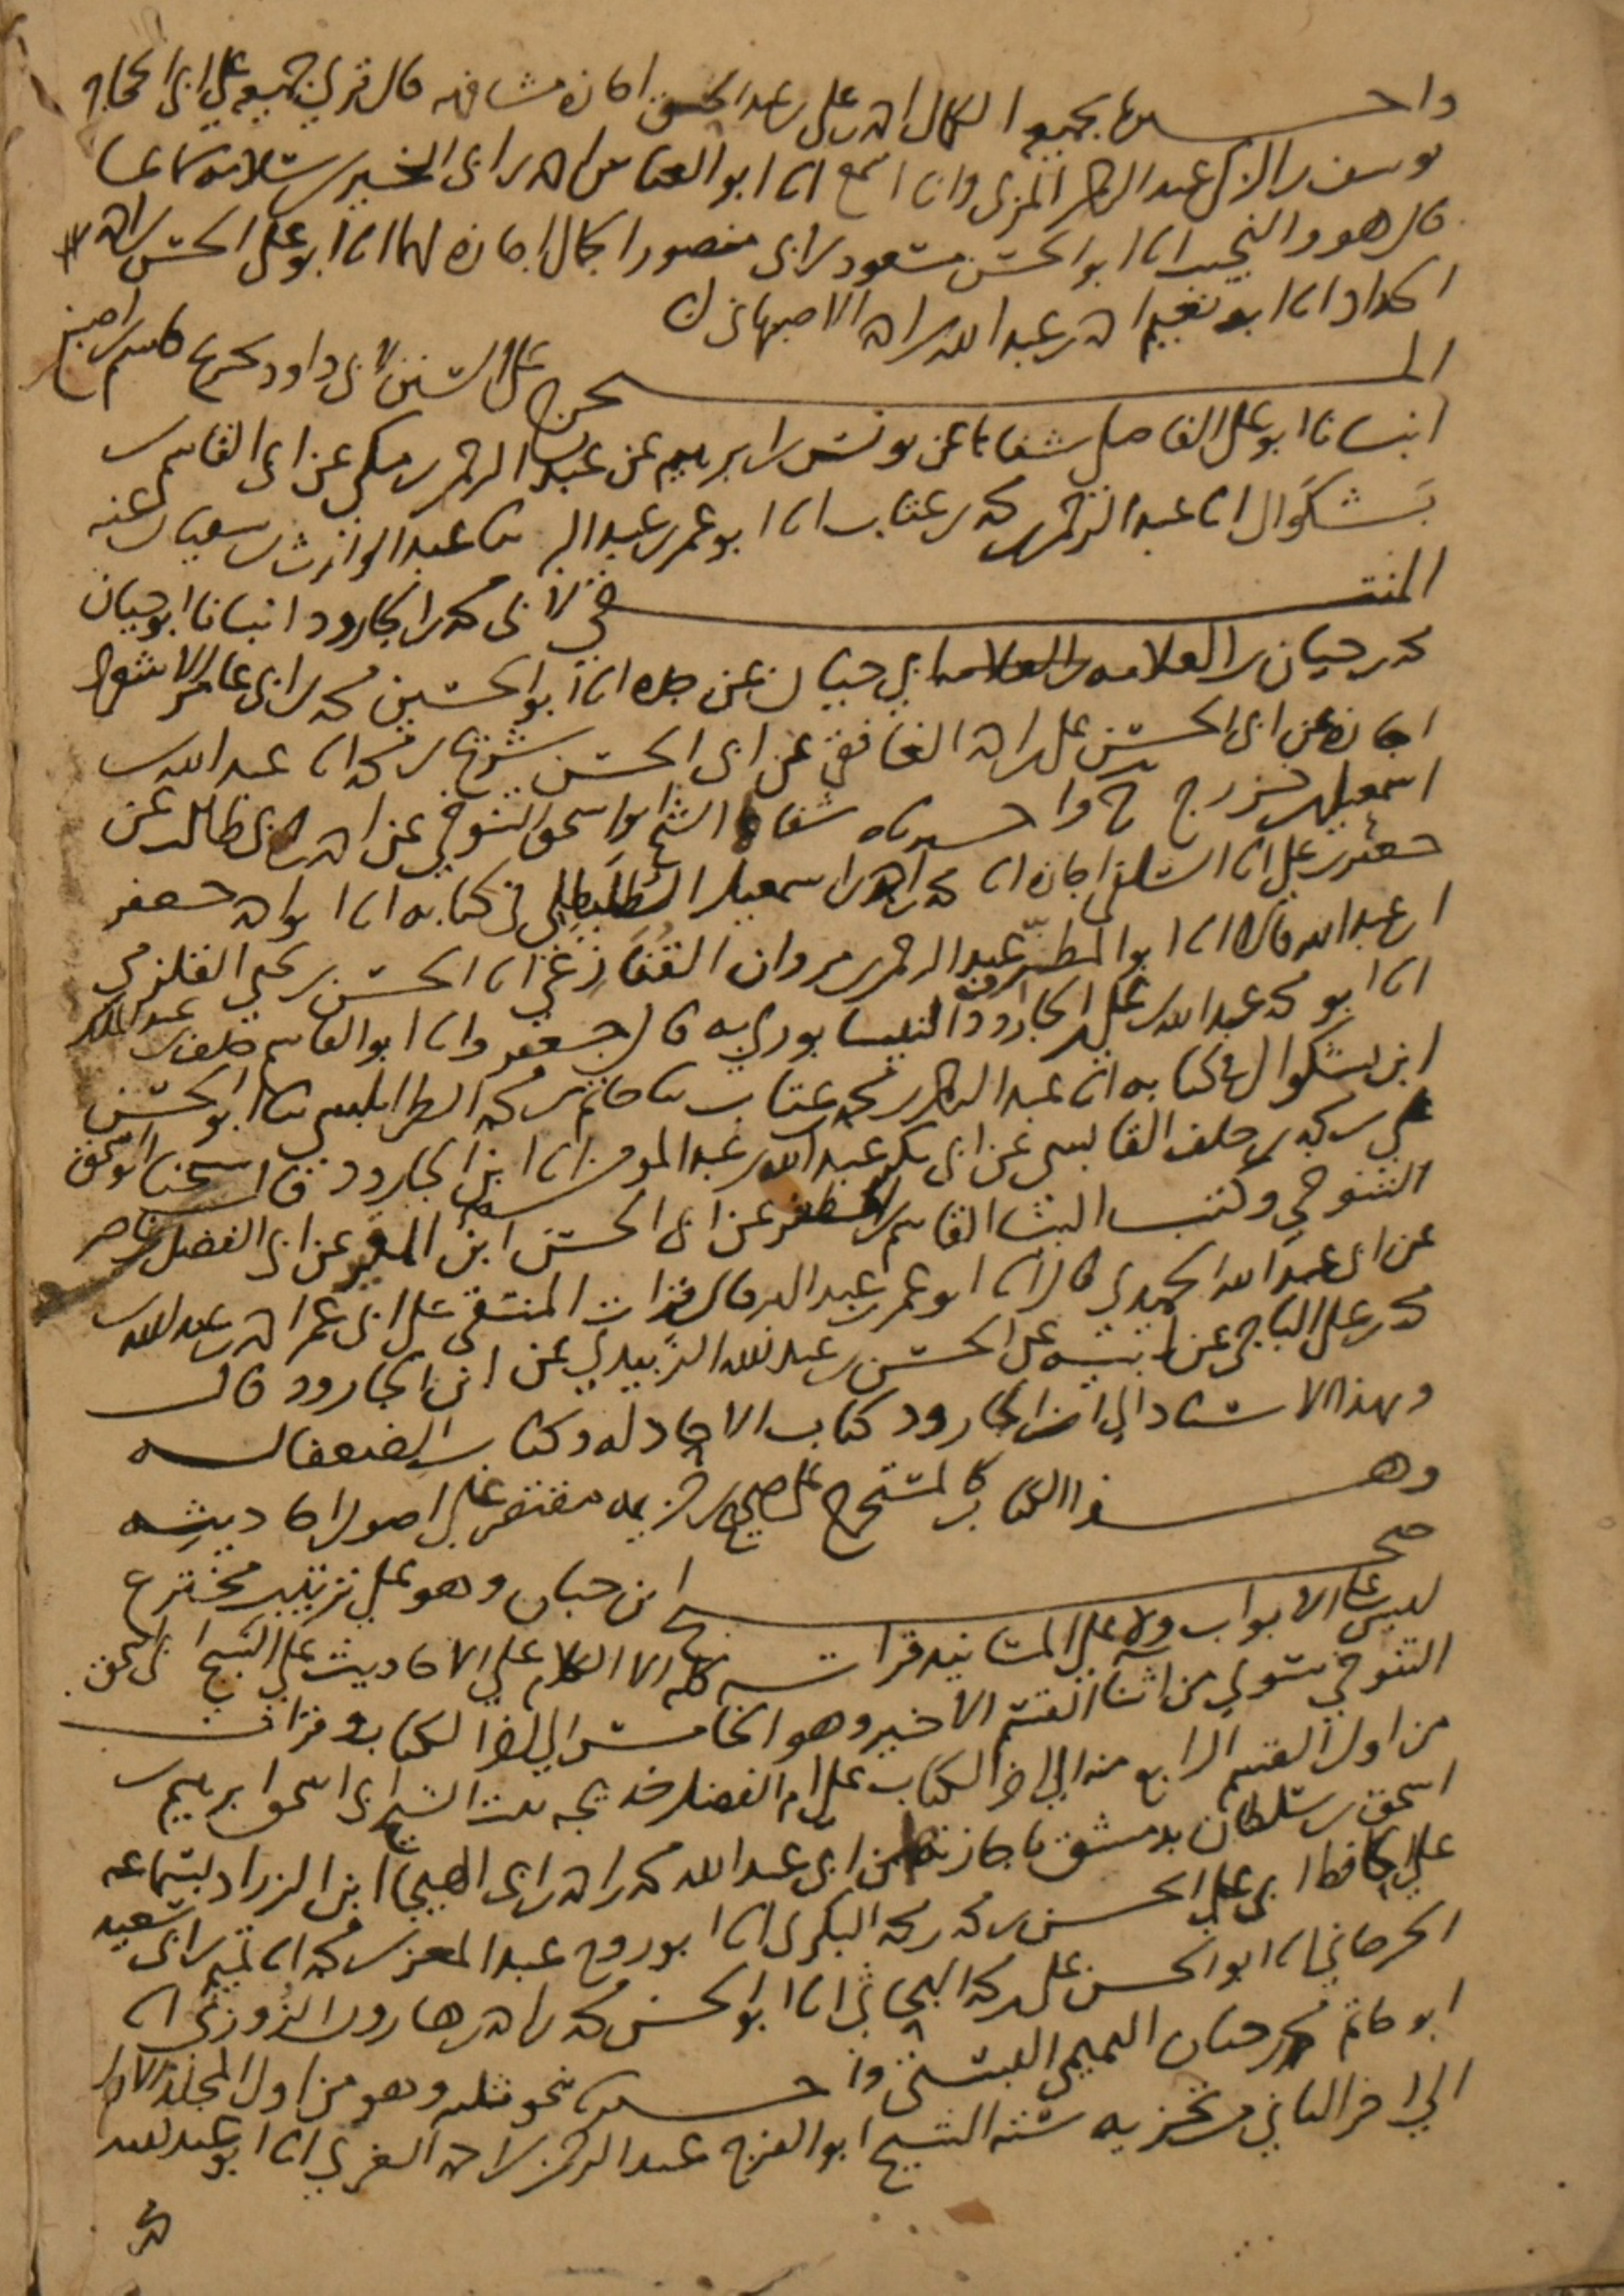 واخبرنا بجميع الكمال احمد بن علي بن عبد الحق اجازة مشافهه قال قرئ جميعه علي ابي الحجاج
يوسف بن الزكي عبد الرحمن المزي وانا اسمع انا ابو العباس احمد بن ابي الخير بن سلامه سماعا
قال هو والنجيب انا ابو الحسن مسعود بن ابي منصور الجمال اجازه لهما انا ابو علي الحسن بن احمد
الحداد انا ابو نعيم احمد بن عبد الله بن احمد الاصبهاني
المستخرج علي السنن لابي داود تخريج قاسم بن اصبغ
انبانا ابو علي الفاضلي شفاها عن يونس بن ابرهيم عن عبد الرحمن بن مكي عن ابي القاسم بن
بشكوال انا عبد الرحمن بن محمد بن عتاب انا ابو عمر بن عبد البر ثنا عبد الوارث بن سفيان عنه
المنتقي لابي محمد بن الجارود انبانا ابو حيان
محمد بن حيان بن العلامه ابي حيان عن جده انا ابو الحسين محمد بن ابي عامر الاشعري
اجازه عن ابي الحسن علي بن احمد الغافقي عن ابي الحسن شريح بن محمد انا عبد الله بن
اسمعيل بن خزرج ح واخبرناه شفاها الشيخ ابو اسحق التنوخي عن احمد بن ابي طالب عن
جعفر بن علي انا السلفي اجازه انا محمد بن احمد بن اسمعيل الطليطلي في كتابه انا ابو احمد جعفر
ابن عبد الله قال انا ابو المطرف عبد الرحمن بن مروان القنازعي انا الحسن بن يحيي القلزمي
انا ابو محمد عبد الله بن علي بن الجارود النيسابوري به قال جعفر وانا ابو القاسم خلف بن عبد الملك
ابن بشكوال في كتابه انا عبد الرحمن بن محمد بن عتاب ثنا حاتم بن محمد الطرابلسي ثنا ابو الحسن
علي بن محمد بن خلف القابسي عن ابي بكر عبد الله بن عبد المومن انا ابن الجارود قال شيخنا ابو اسحق
التنوخي وكتب الينا القاسم بن المظفر عن ابي الحسن ابن المقير عن ابي الفضل بن ناصر
عن ابي عبد الله الحميدي قال انا ابو عمر بن عبد البر قال قرات المنتقي علي ابي عمر احمد بن عبد الله بن
محمد بن علي الباجي عن ابيه عن الحسن بن عبد الله الزبيدي عن ابن الجارود قال
وبهذا الاسناد الي ابن الجارود كتاب الاحاد له وكتاب الضعفا له
وهذا الكتاب كالمستخرج علي صحيح بن خزيمه مقتصر علي اصول احاديثه
صحيح ابن حبان وهو علي ترتيب مخترع
ليس علي الابواب ولا علي المسانيد قراته كله الا الكلام علي الاحاديث علي الشيخ ابي اسحق
التنوخي سوي من اثنا القسم الاخير وهو الخامس الي اخر الكتاب وقرات
من اول القسم الرابع منه الي اخر الكتاب علي ام الفضل خديجه بنت الشيخ ابي اسحق ابرهيم بن
اسحق بن سلطان بدمشق باجازتهما من ابي عبد الله محمد بن احمد بن ابي الهيجا ابن الزراد بسماعه
علي الحافظ ابي علي الحسن بن محمد بن محمد البكري انا ابو روح عبد المعز بن محمد انا تميم بن ابي سعيد
الجرجاني انا ابو الحسن علي بن محمد البحاثي انا ابو الحسن محمد بن احمد بن هارون الزوزني انا
ابو حاتم محمد بن حبان التميمي البستي واخبرنا بنحو ثلثه وهو من اول المجلد الاول
الي اخر الثاني من تجزيه سته الشيخ ابو الفرج عبد الرحمن بن احمد الغزي انا ابو عبد الله